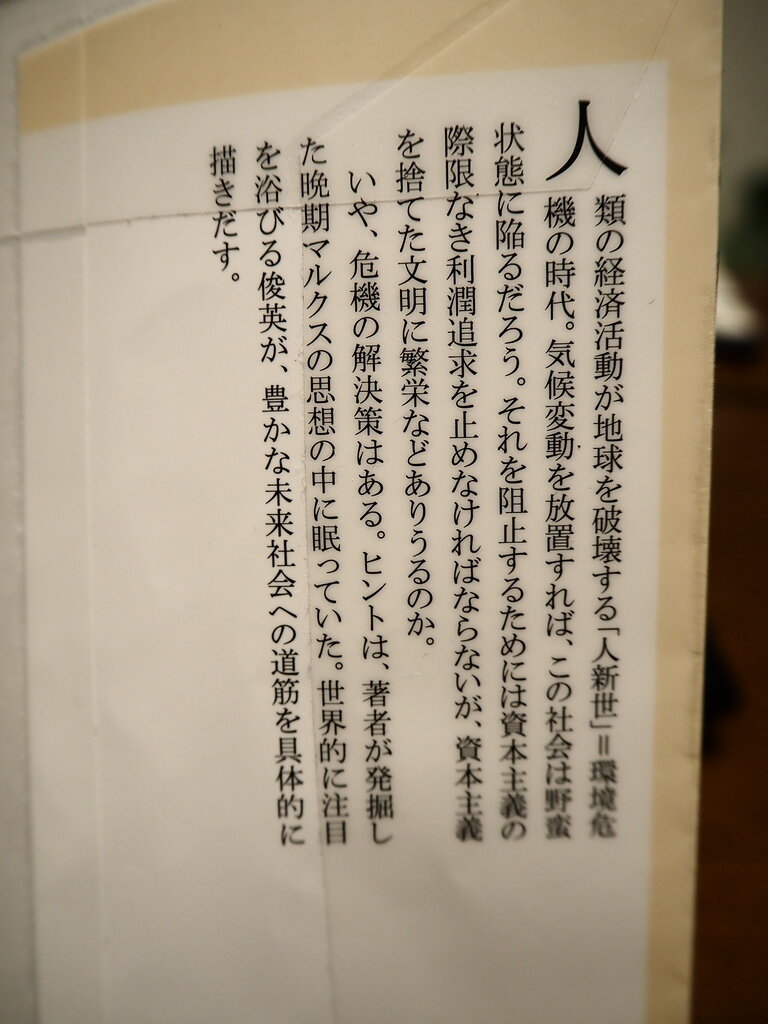 人類の経済活動が地球を破壊する「人新世」＝環境危
機の時代。気候変動を放置すれば、この社会は野蛮
状態に陥るだろう。それを阻止するためには資本主義の
際限なき利潤追求を止めなければならないが、資本主義
を捨てた文明に繁栄などありうるのか。
いや、危機の解決策はある。ヒントは、著者が発掘し
た晩期マルクスの思想の中に眠っていた。世界的に注目
を浴びる俊英が、豊かな未来社会への道筋を具体的に
描きだす。